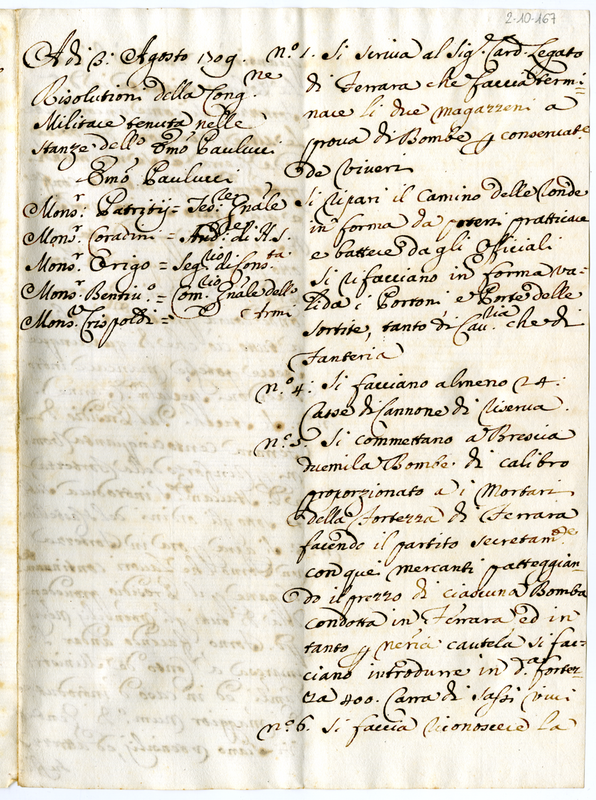 2.10.167
A di 3: Agosto 1709.
Risolutioni della Cong.ne
Militare tenuta nelle
stanze dell' Emo Paulucci
Emo Paulucci
Monsr. Patritij = Tes:re Gnale
Monsr. Coradini = Aud:re di N.S.
Monsr. Origo = Seg:rio di Cons:ta
Monsr. Bentiv:o = Com:rio Gnale dell'
Armi
Monsr. Crispoldi =
n.o 1. Si scriva al Sig.r Card. Legato
di Ferrara che faccia termi=
nare li due magazzeni a
prova di Bombe p conservat.e
de viveri
Si ripari il camino delle ronde
in forma da potersi pratticare
e battere dagli Officiali
Si rifacciano in forma va=
lida i Portoni e Porte delle
sortite, tanto di Cav:ria che di
Fanteria
n.o 4. Si facciano almeno 24.
Casse di Cannone di riserva.
n.o 5. Si commettano a Brescia
duemila Bombe di calibro
proporzionato a i Mortari
della Fortezza di Ferrara
facendo il partito secretam.te
con que mercanti patteggian=
do il prezzo di ciascuna Bomba
condotta in Ferrara ed in
tanto p neria cautela si fac=
ciano introdurre in d.a fortez=
za 400. Carra di sassi vivi
n.o 6. Si faccia riconoscere la